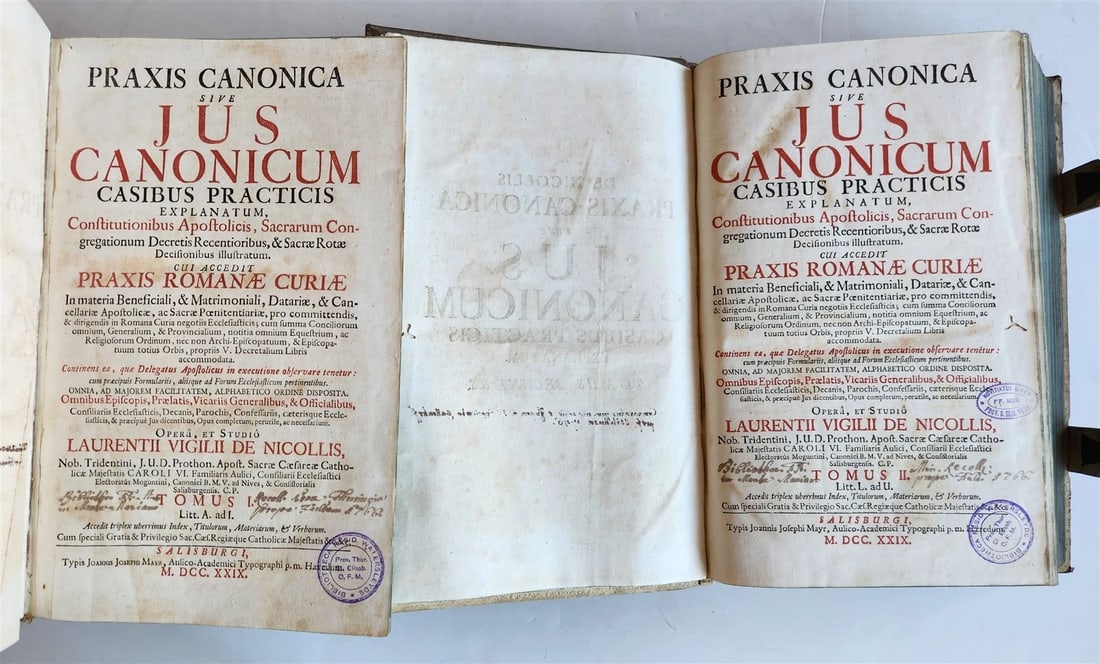 PRAXIS CANONICA
SIVE
JUS
CANONICUM
CASIBUS PRACTICIS
EXPLANATUM,
Conſtitutionibus Apoſtolicis, Sacrarum Con-
gregationum Decretis Recentioribus, & Sacræ Rotæ
Deciſionibus illuſtratum.
CUI ACCEDIT
PRAXIS ROMANÆ CURIÆ
In materia Beneficiali, & Matrimoniali, Datariæ, & Can-
cellariæ Apoſtolicæ, ac Sacræ Pœnitentiariæ, pro committendis,
& dirigendis in Romana Curia negotiis Eccleſiaſticis; cum ſumma Conciliorum
omnium, Generalium, & Provincialium, notitia omnium Equeſtrium, ac
Religioſorum Ordinum, nec non Archi-Epiſcopatuum, & Epiſcopa-
tuum totius Orbis, propriis V. Decretalium Libris
accommodata.
Continens ea, quæ Delegatus Apoſtolicus in executione obſervare tenetur:
cum præcipuis Formulariis, aliisque ad Forum Eccleſiaſticum pertinentibus.
OMNIA, AD MAJOREM FACILITATEM, ALPHABETICO ORDINE DISPOSITA.
Omnibus Epiſcopis, Prælatis, Vicariis Generalibus, & Officialibus,
Conſiliariis Eccleſiaſticis, Decanis, Parochis, Confeſſariis, cæterisque Eccleſia-
ſticis, & præcipuè Jus dicentibus, Opus completum, perutile, ac neceſſarium.
OPERÂ, ET STUDIÔ
LAURENTII VIGILII DE NICOLLIS,
Nob. Tridentini, J.U.D. Prothon. Apoſt. Sacræ Cæſareæ Catho-
licæ Majeſtatis CAROLI VI. Familiaris Aulici, Conſiliarii Eccleſiaſtici
Electoratûs Moguntini, Canonici B. M. V. ad Nives, & Conſiſtorialis
Salisburgenſis. C. P.
TOMUS I.
Litt. A. ad I.
Accedit triplex uberrimus Index, Titulorum, Materiarum, & Verborum.
Cum ſpeciali Gratia & Privilegio Sac. Cæſ. Regiæque Catholicæ Majeſtatis &c.
SALISBURGI,
Typis JOANNIS JOSEPHI MAYR, Aulico-Academici Typographi p. m. Hæredum
M. DCC. XXIX.
BIBLIOTHECA RESID. WATERSLEYDE
Prov. Thur.
S. Elisab.
O. F. M.
PRAXIS CANONICA
SIVE
JUS
CANONICUM
CASIBUS PRACTICIS
EXPLANATUM,
Conſtitutionibus Apoſtolicis, Sacrarum Con-
gregationum Decretis Recentioribus, & Sacræ Rotæ
Deciſionibus illuſtratum.
CUI ACCEDIT
PRAXIS ROMANÆ CURIÆ
In materia Beneficiali, & Matrimoniali, Datariæ, & Can-
cellariæ Apoſtolicæ, ac Sacræ Pœnitentiariæ, pro committendis,
& dirigendis in Romana Curia negotiis Eccleſiaſticis; cum ſumma Conciliorum
omnium, Generalium, & Provincialium, notitia omnium Equeſtrium, ac
Religioſorum Ordinum, nec non Archi-Epiſcopatuum, & Epiſcopa-
tuum totius Orbis, propriis V. Decretalium Libris
accommodata.
Continens ea, quæ Delegatus Apoſtolicus in executione obſervare tenetur:
cum præcipuis Formulariis, aliisque ad Forum Eccleſiaſticum pertinentibus.
OMNIA, AD MAJOREM FACILITATEM, ALPHABETICO ORDINE DISPOSITA.
Omnibus Epiſcopis, Prælatis, Vicariis Generalibus, & Officialibus,
Conſiliariis Eccleſiaſticis, Decanis, Parochis, Confeſſariis, cæterisque Eccleſia-
ſticis, & præcipuè Jus dicentibus, Opus completum, perutile, ac neceſſarium.
OPERÂ, ET STUDIÔ
LAURENTII VIGILII DE NICOLLIS,
Nob. Tridentini, J.U.D. Prothon. Apoſt. Sacræ Cæſareæ Catho-
licæ Majeſtatis CAROLI VI. Familiaris Aulici, Conſiliarii Eccleſiaſtici
Electoratûs Moguntini, Canonici B. M. V. ad Nives, & Conſiſtorialis
Salisburgenſis. C. P.
TOMUS II.
Litt. L. ad U.
Accedit triplex uberrimus Index, Titulorum, Materiarum, & Verborum.
Cum ſpeciali Gratia & Privilegio Sac. Cæſ. Regiæque Catholicæ Majeſtatis &c.
SALISBURGI,
Typis JOANNIS JOSEPHI MAYR, Aulico-Academici Typographi p. m. Hæredum
M. DCC. XXIX.